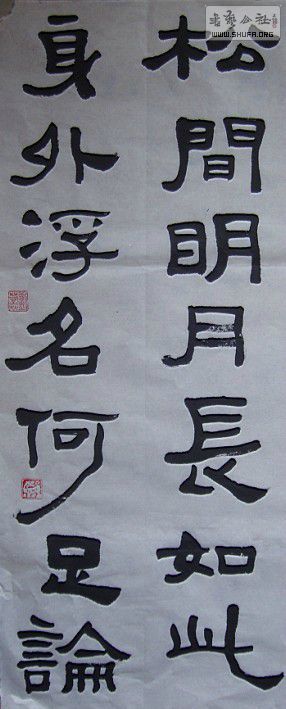 松間明月長如此
身外浮名何足論
书艺公社
WWW.SHUFA.ORG